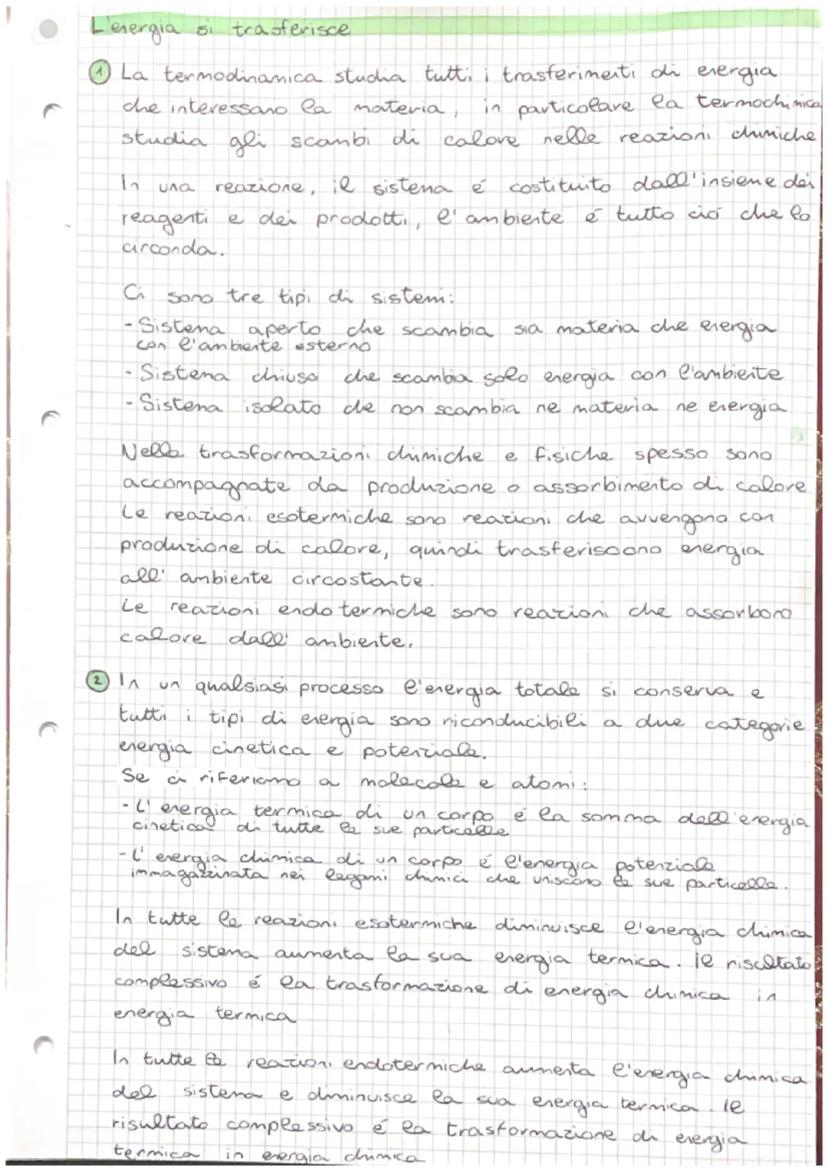 L'energia si trasferisce
1 La termodinamica studia tutti i trasferimenti di energia
che interessano la materia, in particolare la termochimica
studia gli scambi di calore nelle reazioni chimiche
In una reazione, il sistema é costituito dall'insieme dei
reagenti e dei prodotti, l'ambiente é tutto ció che lo
circonda.
Ci sono tre tipi di sistemi:
- Sistema aperto che scambia sia materia che energia
con l'ambiente esterno
- Sistema chiuso che scambia solo energia con l'ambiente
- Sistema isolato che non scambia ne materia ne energia
Nelle trasformazioni chimiche e fisiche spesso sono
accompagnate da produzione o assorbimento di calore
Le reazioni esotermiche sono reazioni che avvengono con
produzione di calore, quindi trasferiscono energia
all'ambiente circostante.
Le reazioni endotermiche sono reazioni che assorbono
calore dall'ambiente.
2 In un qualsiasi processo l'energia totale si conserva e
tutti i tipi di energia sono riconducibili a due categorie
energia cinetica e potenziale.
Se ci riferiamo a molecole e atomi:
- L'energia termica di un corpo é la somma dell'energia
cinetica di tutte le sue particelle
- L'energia chimica di un corpo é l'energia potenziale
immagazzinata nei legami chimici che uniscono le sue particelle.
In tutte le reazioni esotermiche diminuisce l'energia chimica
del sistema aumenta la sua energia termica. Il riscultato
complessivo é la trasformazione di energia chimica in
energia termica
In tutte le reazioni endotermiche aumenta l'energia chimica
del sistema e diminuisce la sua energia termica. Il
risultato complessivo é la trasformazione di energia
termica in energia chimica